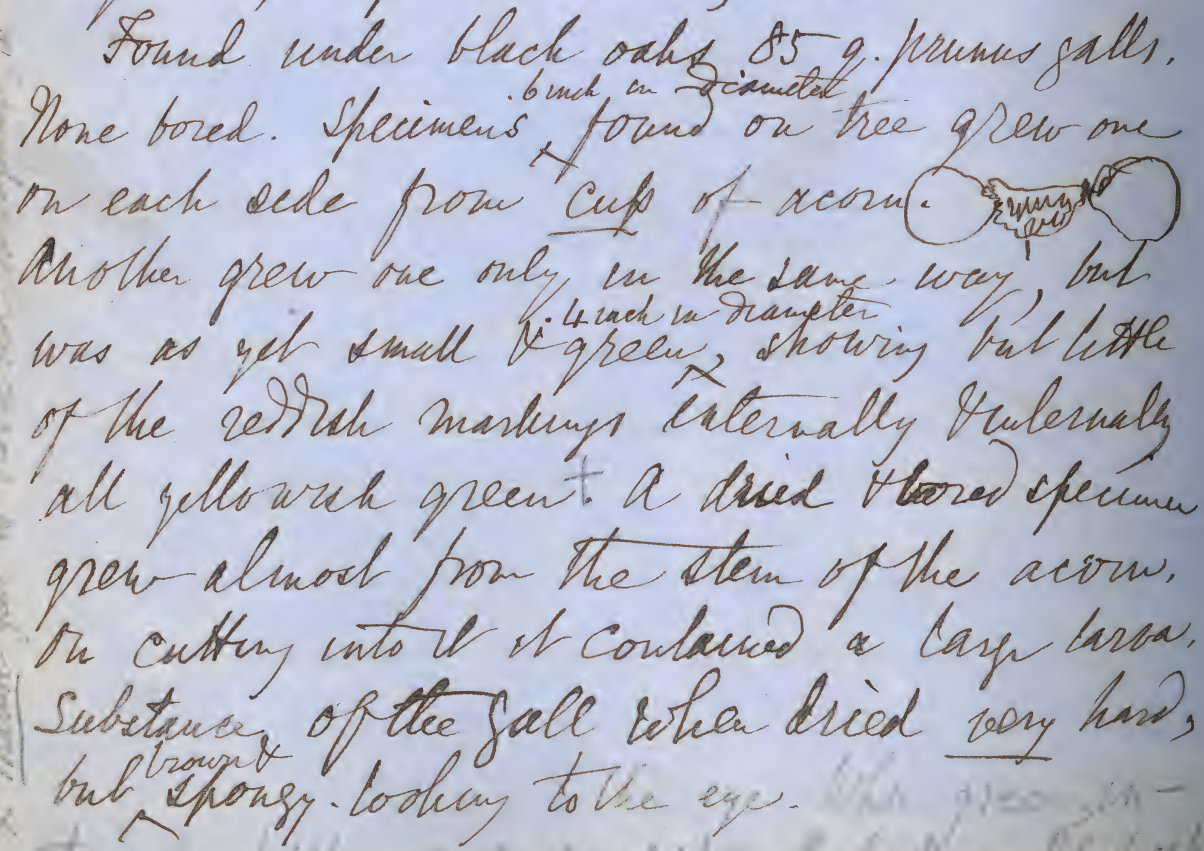 Found under black oaks 85 q. prunus galls.
None bored. Specimens ^ .6 inch in diameter found on tree grew one
on each side from cup of acorn.
Another grew one only in the same way, but
was as yet small & green, ^ .4 inch in diameter showing but little
of the reddish markings externally & internally
all yellowish green. A dried & bored specimen
grew almost from the stem of the acorn.
On cutting into it it contained a large larva.
Substance of the gall when dried very hard,
but ^ brown & spongy-looking to the eye. When green in-